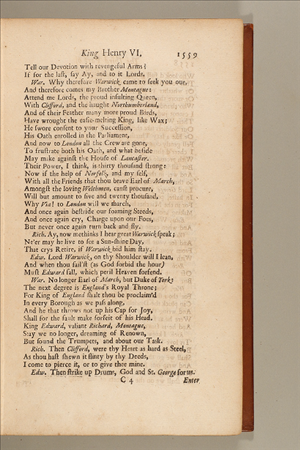 King Henry VI, 1559
Tell our Devotion with revengeful Arms?
If for the last, say Ay, and to it Lords.
War. Why therefore Warwick came to seek you out,
And therefore comes my Brother Montague:
Attend me Lords, the proud insulting Queen,
With Clifford, and the haught Northumberland,
And of their Feather many more proud Birds,
Have wrought the easie-melting King, like Wax;
He swore consent to your Succession,
His Oath enrolled in the Parliament,
And now to London all the Crew are gone,
To frustrate both his Oath, and what beside
May make against the House of Lancaster.
Their Power, I think, is thirty thousand strong:
Now if the help of Norfolk, and my self,
With all the Friends that thou brave Earl of March,
Amongst the loving Welshmen, canst procure,
Will but amount to five and twenty thousand,
Why Via! to London will we march,
And once again bestride our foaming Steeds,
And once again cry, Charge upon our Foes,
But never once again turn back and fly.
Rich. Ay, now methinks I hear great Warwick speak;
Ne'er may he live to see a Sun-shine Day,
That crys Retire, if Warwick bid him stay.
Edw. Lord Warwick, on thy Shoulder will I lean,
And when thou fail'st (as God forbid the hour)
Must Edward fall, which peril Heaven forefend.
War. No longer Earl of March, but Duke of York;
The next degree is England's Royal Throne:
For King of England shalt thou be proclaim'd
In every Borough as we pass along,
And he that throws not up his Cap for Joy,
Shall for the fault make forfeit of his Head.
King Edward, valiant Richard, Montague,
Stay we no longer, dreaming of Renown,
But sound the Trumpets, and about our Task.
Rich. Then Clifford, were thy Heart as hard as Steel,
As thou hast shewn it flinty by thy Deeds,
I come to pierce it, or to give thee mine.
Edw. Then strike up Drums, God and St. George for us.
C 4 Enter